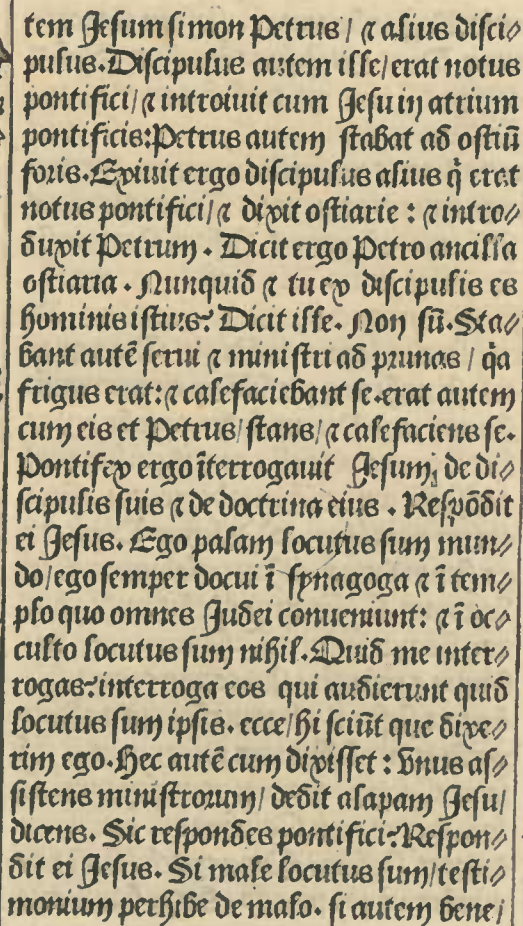 tem Jesum simon Petrus / ⁊ alius disci⸗
pulus. Discipulus autem ille / erat notus
pontifici / ⁊ introiuit cum Jesu in atrium
pontificis: Petrus autem stabat ad ostiū
foris. Exiuit ergo discipulus alius q̄ erat
notus pontifici / ⁊ dixit ostiarie : ⁊ intro⸗
duxit Petrum . Dicit ergo Petro ancilla
ostiaria . Nunquid ⁊ tu ex discipulis es
hominis istius? Dicit ille. Non sū. Sta⸗
bant autē serui ⁊ ministri ad prunas / q̇a
frigus erat: ⁊ calefaciebant se. erat autem
cum eis et Petrus / stans / ⁊ calefaciens se.
Pontifex ergo īterrogauit Jesum, de di⸗
scipulis suis ⁊ de doctrina eius . Respōdit
ei Jesus. Ego palam locutus sum mun⸗
do / ego semper docui ī synagoga ⁊ ī tem⸗
plo quo omnes Judei conueniunt: ⁊ ī oc⸗
culto locutus sum nihil. Quid me inter⸗
rogas? interroga eos qui audierunt quid
locutus sum ipsis. ecce / hi sciūt que dixe⸗
rim ego. Hec autē cum dixisset : vnus as⸗
sistens ministrorum / dedit alapam Jesu /
dicens. Sic respondes pontifici? Respon⸗
dit ei Jesus. Si male locutus sum / testi⸗
monium perhibe de malo. si autem bene /